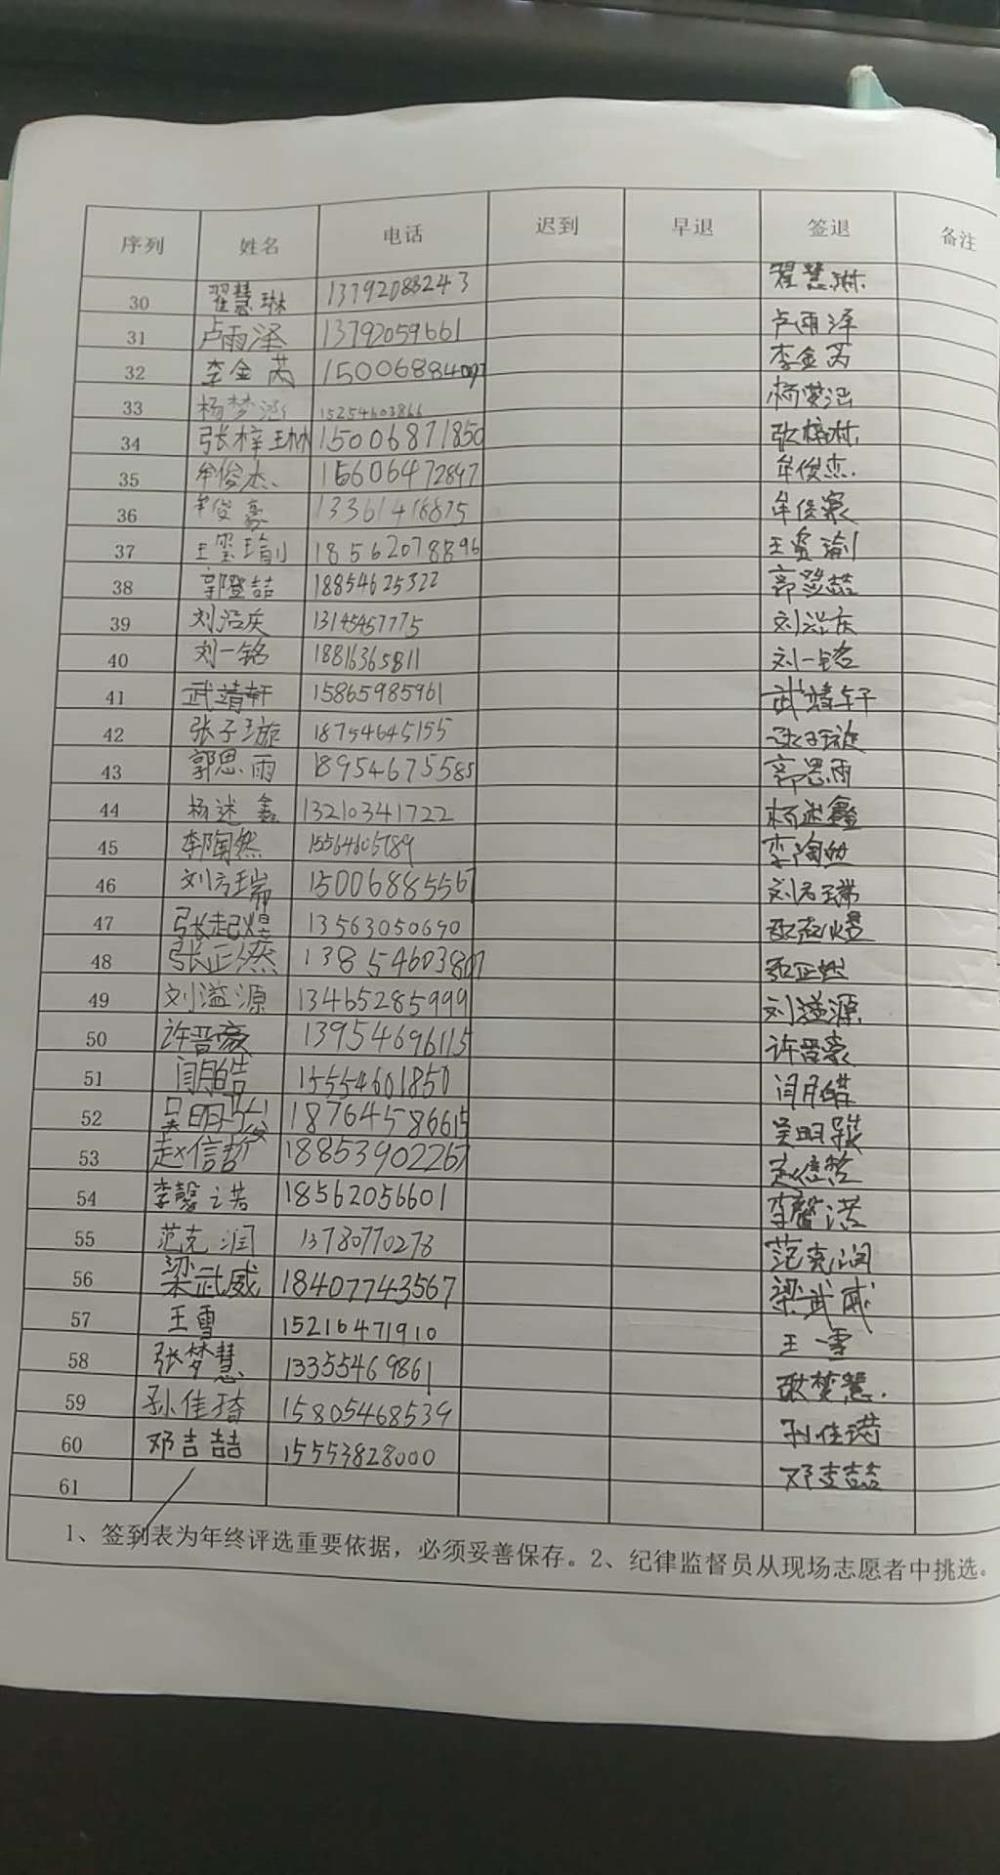 序列 姓名 电话 迟到 早退 签退 备注
30 翟慧琳 13792088243 翟慧琳
31 卢雨泽 13792059661 卢雨泽
32 李金芮 李金芮
33 杨梦涵 15254603866
34 张梓琳 15006871850 张梓琳
35 牟俊杰 15606472897 牟俊杰
36 牟俊豪 13361418875 牟俊豪
37 王玺瑜 18562078896 王玺瑜
38 郭登喆 18854625322 郭登喆
39 刘浩庆 刘浩庆
40 刘一铭 18816365811 刘一铭
41 武靖轩 15865985961 武靖轩
42 张子璇 18754645155 张子璇
43 郭思雨 18954675585 郭思雨
44 杨述鑫 13210341722 杨述鑫
45 李陶然 李陶然
46 刘方瑞 15006885567 刘方瑞
47 张起煜 13563050690 张起煜
48 张正 13854603807 张正
49 刘溢源 13465285999 刘溢源
50 许晋豪 13954696115 许晋豪
51 闫皓 15554601850 闫皓
52 吴明 18764586615 吴明
53 赵信哲 18853902267 赵信哲
54 李馨诺 18562056601 李馨诺
55 范克润 13780770278 范克润
56 梁武威 18407743567 梁武威
57 王雪 15216471910 王雪
58 张梦慧 13355469861 张梦慧
59 孙佳琦 15805468539
60 邓吉喆 15553828000 邓吉喆
61
1、签到表为年终评选重要依据，必须妥善保存。2、纪律监督员从现场志愿者中挑选。